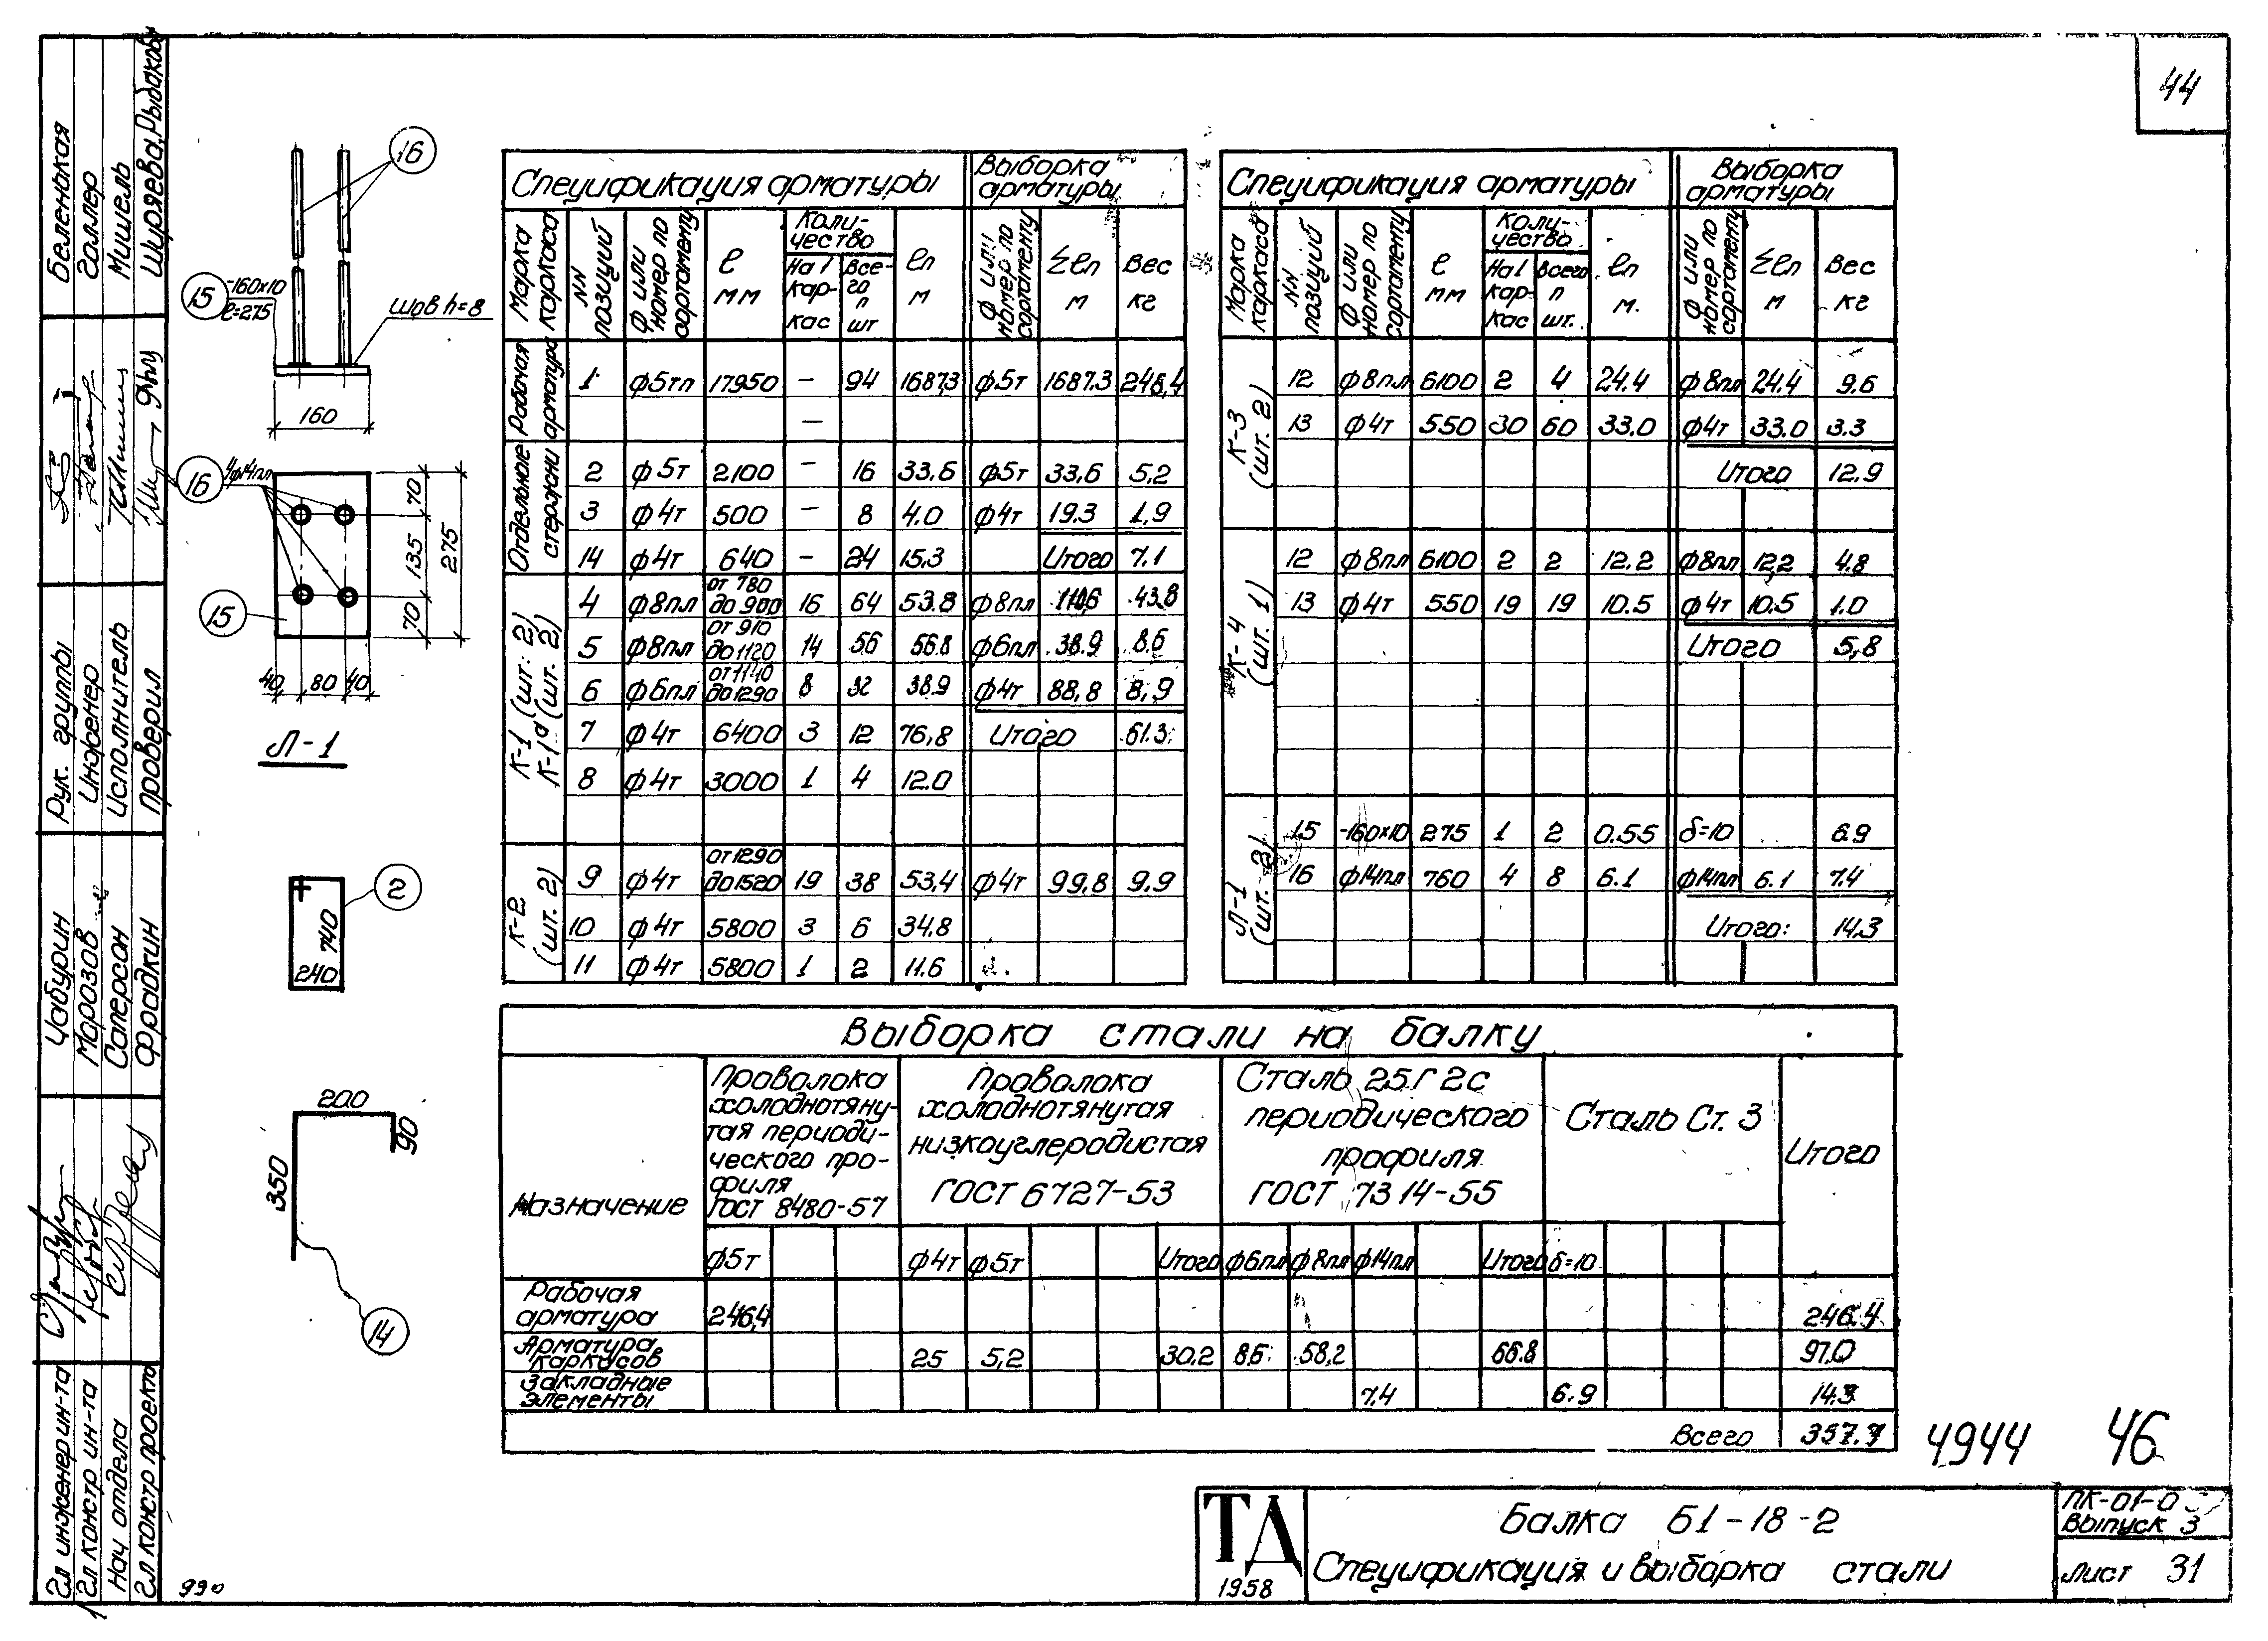 44
Беленькая
Галлер
Мишель
Ширяева, Рыбакова
Рук. группы
Инженер
Исполнитель
Проверил
Чабурин
Морозов
Саперсон
Фрадкин
Гл инженер ин-та
Гл констр ин-та
Нач отдела
Гл констр проекта
990
16
15
-160х10
ℓ=275
шов h=8
160
16
4ф14пл
15
70
135
70
275
40 80 40
Л-1
2
740
240
200
90
350
14
Спецификация арматуры
Выборка арматуры
Марка каркаса
NN позиций
Ф или номер по сортаменту
ℓ мм
Количество
На 1 каркас
Всего n шт
ℓn м
Ф или номер по сортаменту
Σℓn м
Вес кг
Рабочая арматура
1 ф5тп 17950 — 94 1687,3 ф5т 1687.3 246,4
—
Отдельные стержни
2 ф5т 2100 — 16 33.6 ф5т 33,6 5,2
3 ф4т 500 — 8 4.0 ф4т 19.3 1,9
14 ф4т 640 — 24 15.3 Итого 7.1
К-1 (шт. 2)
К-1а (шт. 2)
4 ф8пл от 780 до 900 16 64 53.8 ф8пл 110,6 43,8
5 ф8пл от 910 до 1120 14 56 56.8 ф6пл 38.9 8.6
6 ф6пл от 1140 до 1290 8 32 38.9 ф4т 88,8 8,9
7 ф4т 6400 3 12 76,8 Итого 61.3
8 ф4т 3000 1 4 12.0
К-2 (шт. 2)
9 ф4т от 1290 до 1520 19 38 53,4 ф4т 99,8 9.9
10 ф4т 5800 3 6 34.8
11 ф4т 5800 1 2 11.6
Спецификация арматуры
Выборка арматуры
Марка каркаса
NN позиций
Ф или номер по сортаменту
ℓ мм
Количество
На 1 каркас
Всего n шт.
ℓn м.
Ф или номер по сортаменту
Σℓn м
Вес кг
К-3 (шт. 2)
12 ф8пл 6100 2 4 24.4 ф8пл 24.4 9.6
13 ф4т 550 30 60 33.0 ф4т 33.0 3.3
Итого 12.9
К-4 (шт. 1)
12 ф8пл 6100 2 2 12.2 ф8пл 12,2 4.8
13 ф4т 550 19 19 10.5 ф4т 10.5 1.0
Итого 5,8
Л-1 (шт. 2)
15 -160х10 275 1 2 0.55 δ=10 6.9
16 ф14пл 760 4 8 6.1 ф14пл 6.1 7.4
Итого: 14.3
Выборка стали на балку
Назначение
Проволока холоднотянутая периодического профиля ГОСТ 8480-57
Проволока холоднотянутая низкоуглеродистая ГОСТ 6727-53
Сталь 25Г2с периодического профиля ГОСТ 7314-55
Сталь Ст. 3
Итого
ф5т ф4т ф5т Итого ф6пл ф8пл ф14пл Итого δ=10
Рабочая арматура 246,4 246.4
Арматура каркасов 25 5,2 30.2 8.6 58,2 66.8 97.0
Закладные элементы 7,4 6.9 14.3
Всего 357.7
4944 46
ТД
1958
Балка Б1-18-2
Спецификация и выборка стали
ПК-01-0
Выпуск 3
Лист 31